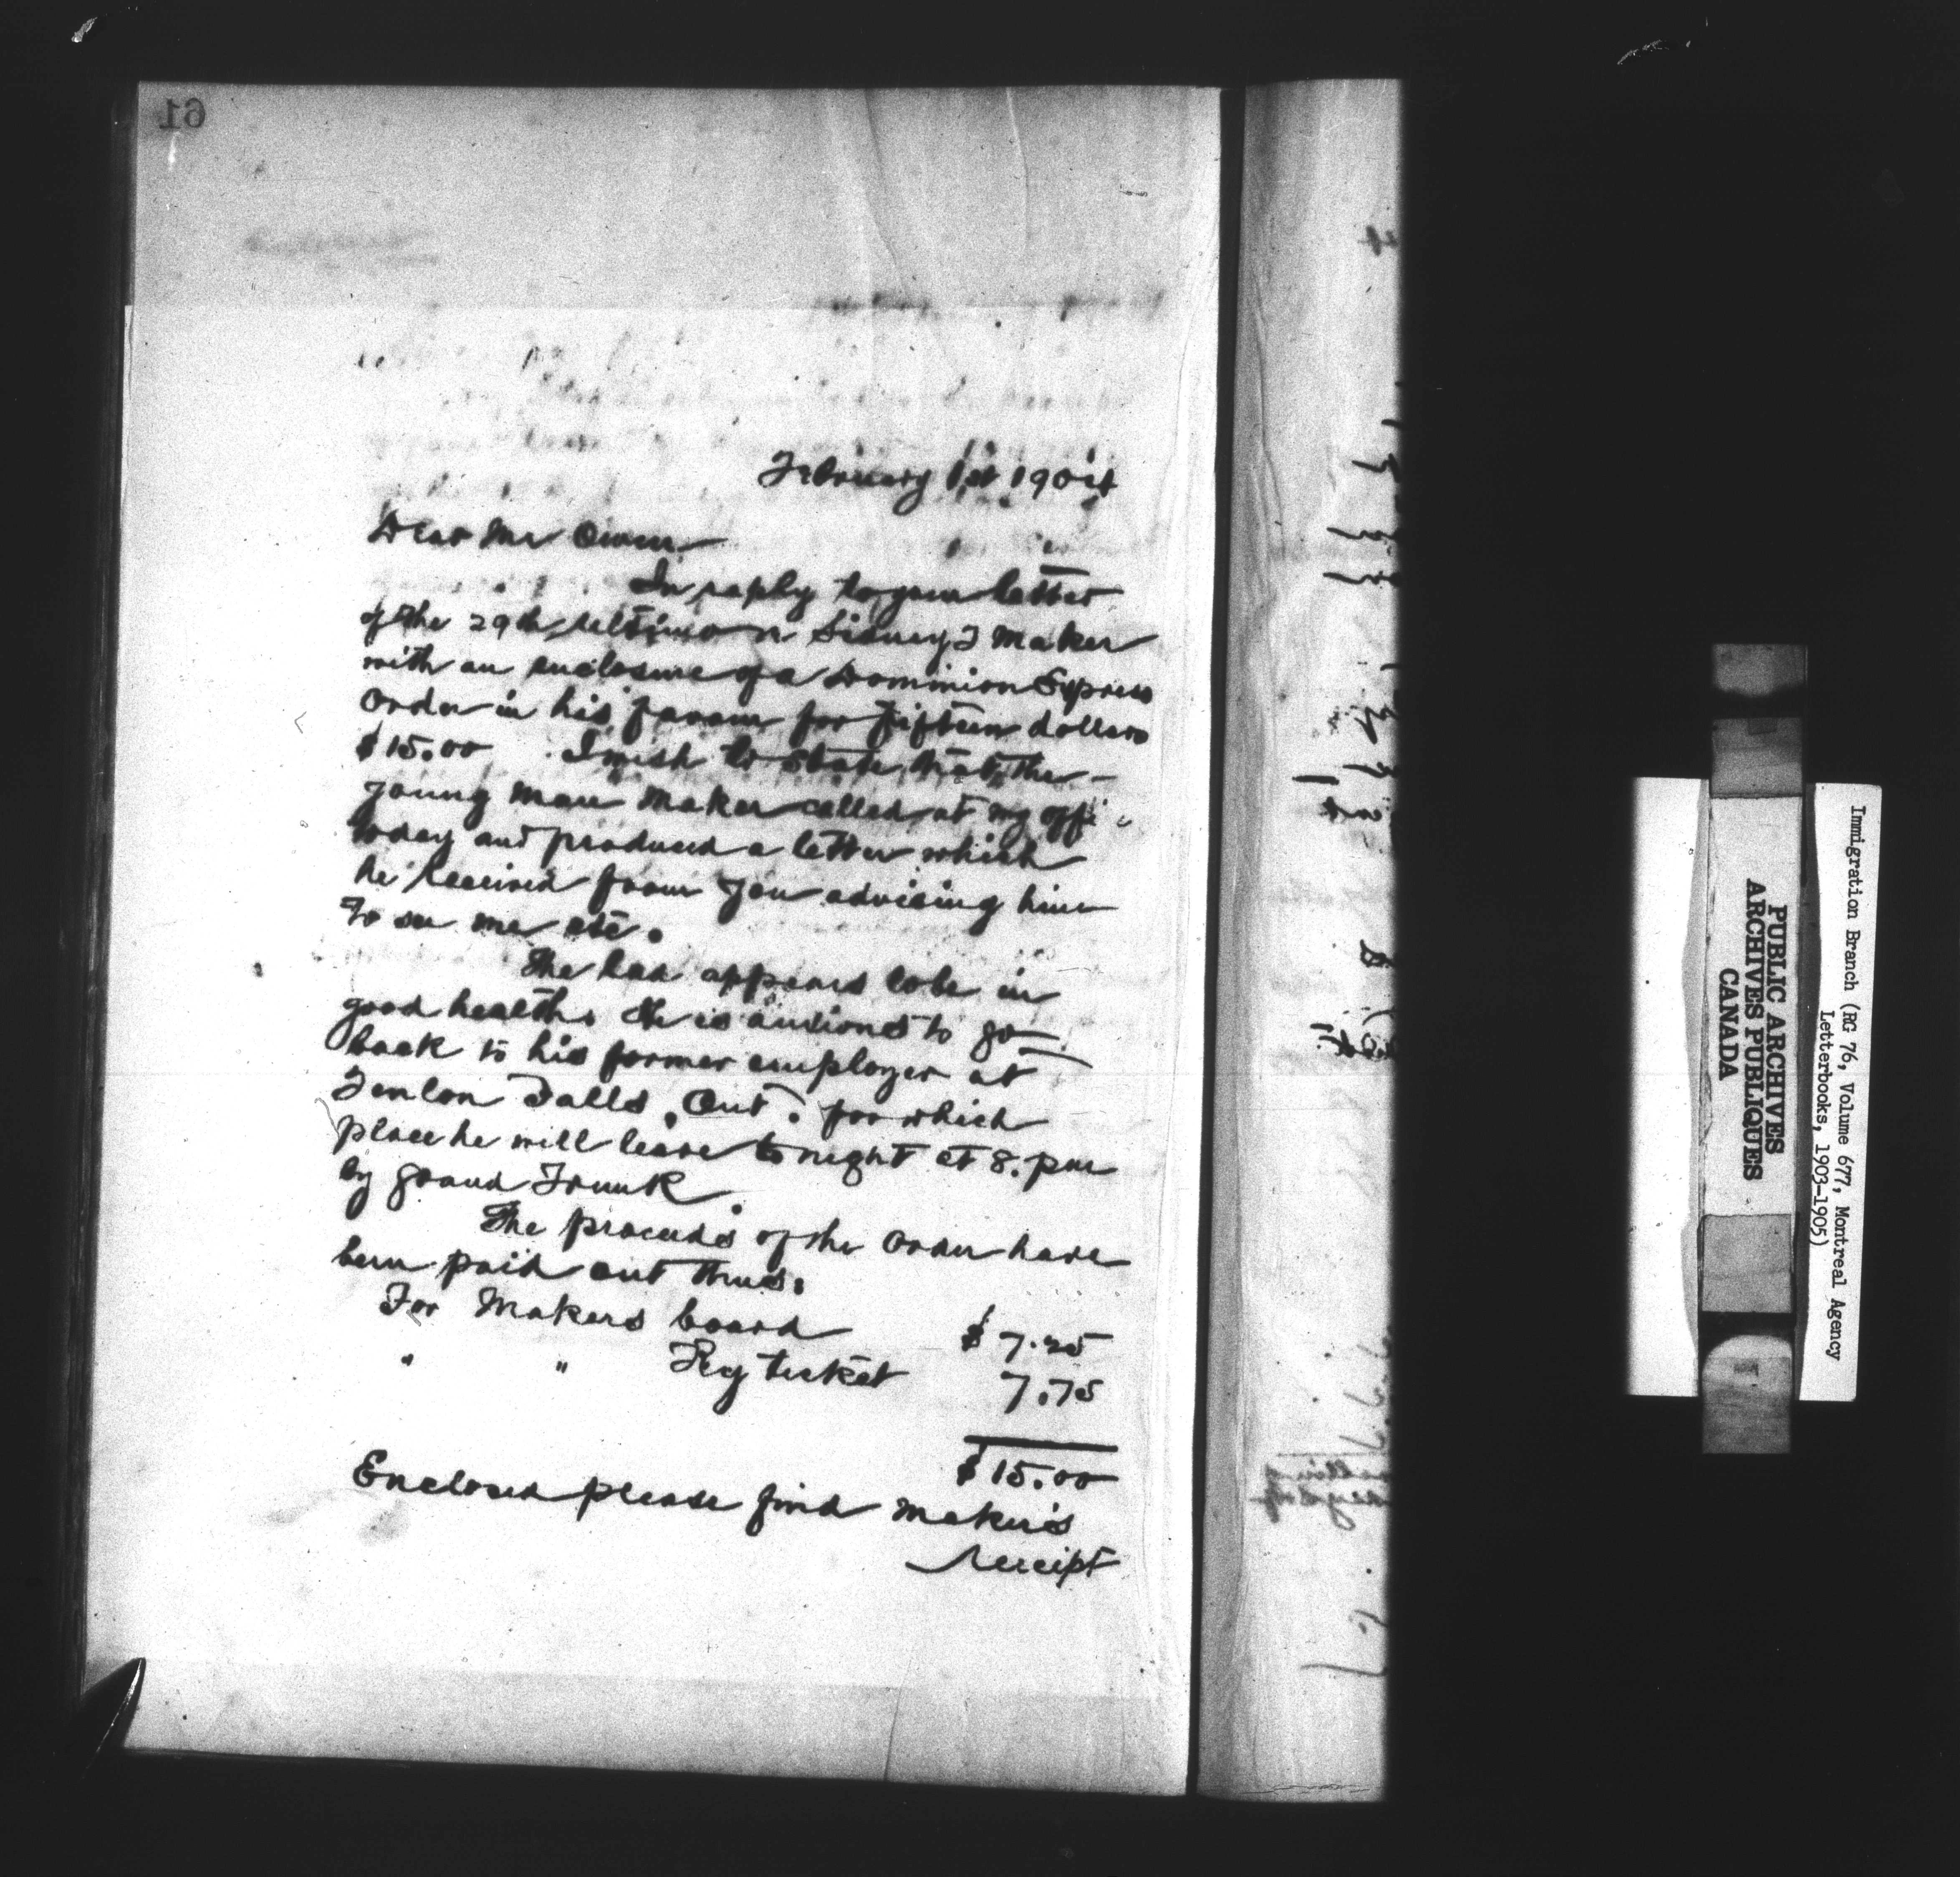 61
February 1st 1904
Dear Mr Owen
In reply to your letter
of the 29th ultimo re Sidney J Maker
with an enclosure of a Dominion Express
Order in his favour for fifteen dollars
$15.00 I wish to state that the
young man Maker called at my offi
today and produced a letter which
he received from you advising him
to see me etc.
The lad appears to be in
good health. He is anxious to go
back to his former employer at
Fenlon Falls, Ont. for which
place he will leave to night at 8. pm
by Grand Trunk.
The proceeds of the Order have
been paid out thus:
For Makers board $7.25
" " Ry ticket 7.75
$15.00
Enclosed please find Maker's
receipt
Immigration Branch (RG 76, Volume 677, Montreal Agency
Letterbooks, 1903-1905)
PUBLIC ARCHIVES
ARCHIVES PUBLIQUES
CANADA